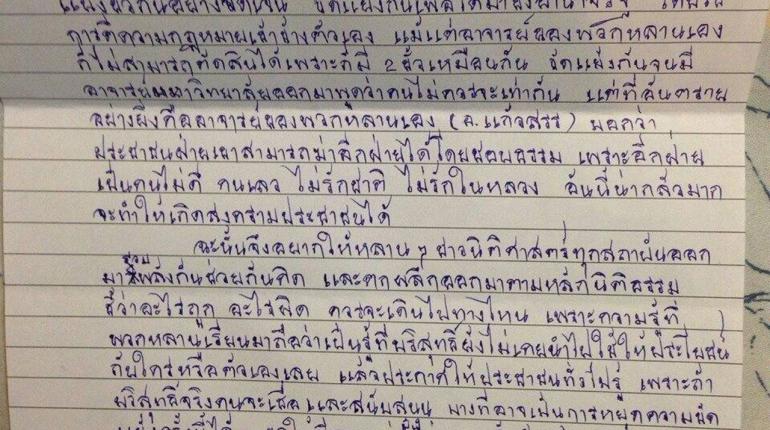 การตีความกฎหมายเข้าข้างตัวเอง แม้แต่อาจารย์ของพวกหลานเอง
ก็ไม่สามารถตัดสินได้เพราะก็มี 2 ขั้วเหมือนกัน ขัดแย้งกันจนมี
อาจารย์มหาวิทยาลัยออกมาพูดว่าคนไม่ควรจะเท่ากัน แต่ที่อันตราย
อย่างยิ่งคืออาจารย์ของพวกหลานเอง (อ.แก้วสรร) บอกว่า
ประชาชนฝ่ายเขาสามารถฆ่าอีกฝ่ายได้โดยชอบธรรม เพราะอีกฝ่าย
เป็นคนไม่ดี คนเลว ไม่รักชาติ ไม่รักในหลวง อันนี้น่ากลัวมาก
จะทำให้เกิดสงครามประชาชนได้
ฉะนั้นจึงอยากให้หลาน ๆ ชาวนิติศาสตร์ทุกสถาบันออก
มารวมพลังกันช่วยกันคิด และตกผลึกออกมาตามหลักนิติธรรม
ชี้ว่าอะไรถูก อะไรผิด ควรจะเดินไปทางไหน เพราะความรู้ที่
พวกหลานเรียนมาถือว่าเป็นรู้ที่บริสุทธิ์ยังไม่เคยนำไปใช้ให้ประโยชน์
กับใครหรือตัวเองเลย แล้วประกาศให้ประชาชนทั่วไปรู้ เพราะถ้า
บริสุทธิ์จริงคนจะเชื่อและสนับสนุน บางทีอาจเป็นการหยุดความขัด